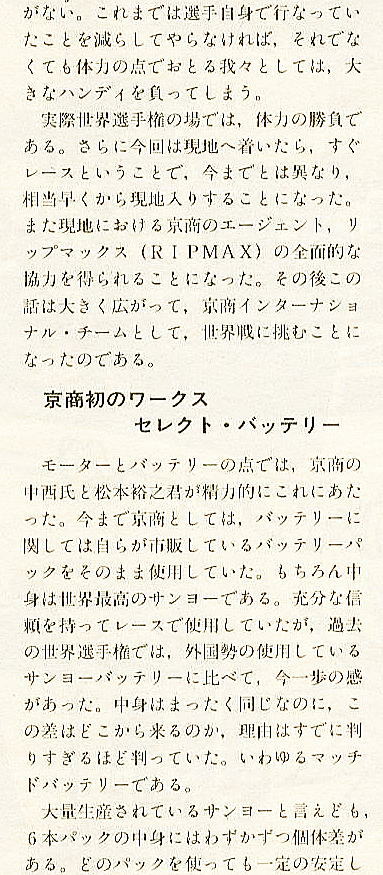 がない。これまでは選手自身で行なってい
たことを減らしてやらなければ，それでな
くても体力の点でおとる我々としては，大
きなハンディを負ってしまう。
実際世界選手権の場では，体力の勝負で
ある。さらに今回は現地へ着いたら，すぐ
レースということで，今までとは異なり，
相当早くから現地入りすることになった。
また現地における京商のエージェント，リ
ップマックス（RIPMAX）の全面的な
協力を得られることになった。その後この
話は大きく広がって，京商インターナショ
ナル・チームとして，世界戦に挑むことに
なったのである。
京商初のワークス
セレクト・バッテリー
モーターとバッテリーの点では，京商の
中西氏と松本裕之君が精力的にこれにあた
った。今まで京商としては，バッテリーに
関しては自らが市販しているバッテリーパ
ックをそのまま使用していた。もちろん中
身は世界最高のサンヨーである。充分な信
頼を持ってレースで使用していたが，過去
の世界選手権では，外国勢の使用している
サンヨーバッテリーに比べて，今一歩の感
があった。中身はまったく同じなのに，こ
の差はどこから来るのか，理由はすでに判
りすぎるほど判っていた。いわゆるマッチ
ドバッテリーである。
大量生産されているサンヨーと言えども，
6本パックの中身にはわずかずつ個体差が
ある。どのパックを使っても一定の安定し